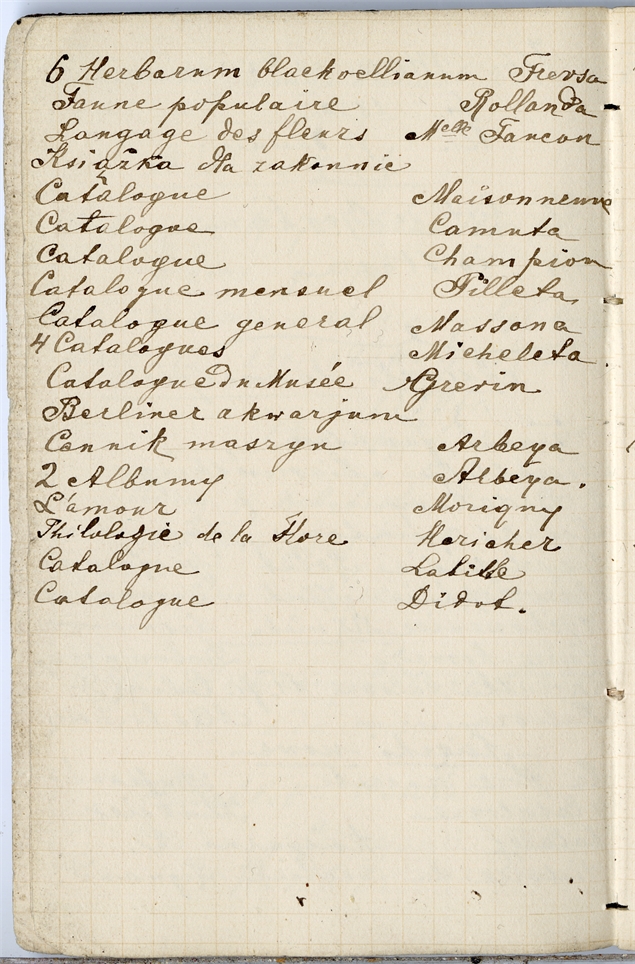 6 Herbarum blackvellianum Trevsa
Faune populaire Rollanda
Langage des fleurs Melle Faucon
Książka dla zakonnic
Catalogue Maisonneuve
Catalogue Camuta
Catalogue Champion
Catalogue mensuel Filleta
Catalogue general Massona
4 Catalogues Micheleta
Catalogue du Musée Grevin
Berliner akwarjum
Cennik maszyn Arbeya
2 Albumy Arbeya.
L'amour Morigny
Philologie de la Flore Hericher
Catalogue
Catalogue Didot.